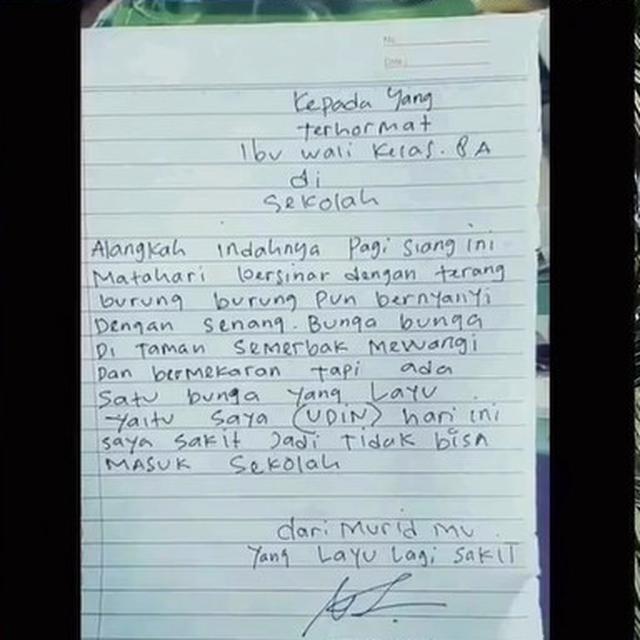 No.
Date.
Kepada Yang
terhormat
Ibu wali Kelas. 8A
di
Sekolah
Alangkah indahnya Pagi siang ini
Matahari bersinar dengan terang
burung burung pun bernyanyi
Dengan senang. Bunga bunga
Di Taman Semerbak Mewangi
Dan bermekaran tapi ada
Satu bunga yang Layu
yaitu saya (UDIN) hari ini
saya sakit Jadi Tidak bisa
MASUK Sekolah
dari Murid mu
Yang Layu Lagi SAKIT